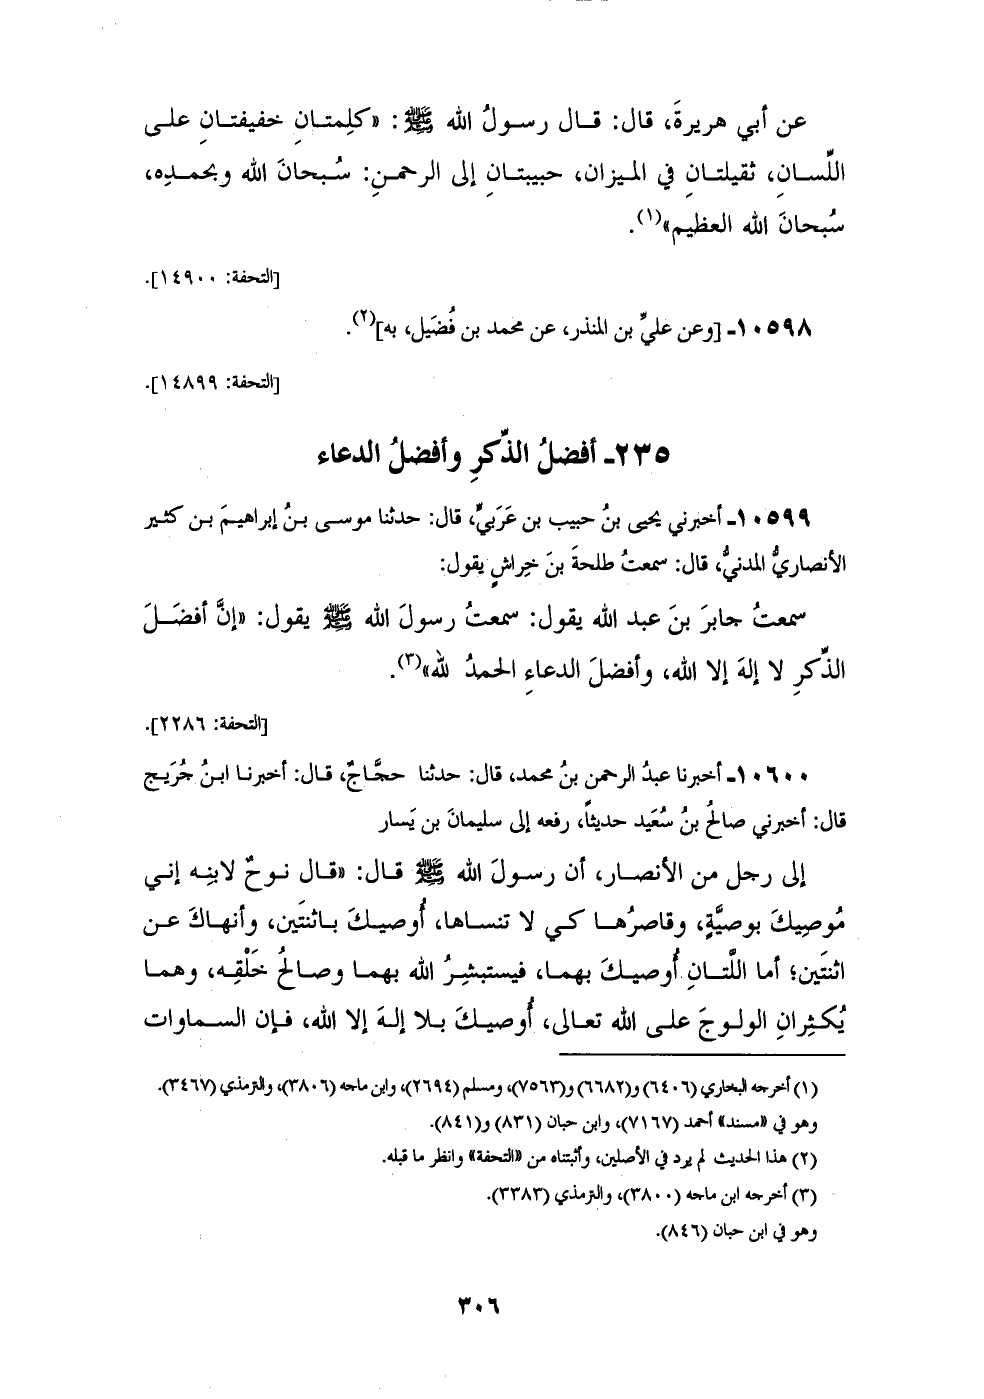 عن أبي هريرةَ، قال: قـال رسـولُ الله ﷺ: «كلِمتـانِ خفيفتـانِ علـى
اللِّسـانِ، ثقيلتـانِ في المـيزان، حبيبتـانِ إلى الرحمـنِ: سُـبحانَ الله وبحمـدِه،
سُبحانَ الله العظيم»(١).
[التحفة: ١٤٩٠٠].
١٠٥٩٨ـ [وعن عليِّ بن المنذر، عن محمد بن فُضَيل، به](٢).
[التحفة: ١٤٨٩٩].
٢٣٥ـ أفضلُ الذِّكرِ وأفضلُ الدعاء
١٠٥٩٩ـ أخبرني يحيى بنُ حبيب بن عَرَبيٍّ، قال: حدثنا موسـى بـنُ إبراهيـمَ بـن كثـير
الأنصاريُّ المدنيُّ، قال: سمعتُ طلحةَ بنَ خِراشٍ يقول:
سمعتُ جابرَ بنَ عبد الله يقول: سمعتُ رسولَ الله ﷺ يقول: «إنَّ أفضَـلَ
الذِّكرِ لا إلهَ إلا الله، وأفضلَ الدعاءِ الحمدُ لله»(٣).
[التحفة: ٢٢٨٦].
١٠٦٠٠ـ أخبرنا عبدُ الرحمن بنُ محمد، قال: حدثنا حجَّاجٌ، قـال: أخبرنـا ابـنُ جُرَيـج
قال: أخبرني صالحُ بنُ سُعَيد حديثاً، رفعه إلى سليمانَ بن يَسار
إلى رجل من الأنصـار، أن رسـولَ الله ﷺ قـال: «قـال نـوحٌ لابنِـه إنـي
مُوصِيكَ بوصيَّةٍ، وقاصِرُهـا كـي لا تنسـاها، أُوصيـكَ بـاثنتَين، وأنهـاكَ عـن
اثنتَين؛ أما اللَّتـانِ أُوصيـكَ بهمـا، فيستبشِـرُ الله بهمـا وصـالحُ خَلْقِـه، وهمـا
يُكـثِرانِ الولـوجَ علـى الله تعـالى، أُوصيـكَ بـلا إلـهَ إلا الله، فـإن السـماوات
(١) أخرجه البخاري (٦٤٠٦) و(٦٦٨٢) و(٧٥٦٣)، ومسلم (٢٦٩٤)، وابن ماجه (٣٨٠٦)، والترمذي (٣٤٦٧).
وهو في «مسند» أحمد (٧١٦٧)، وابن حبان (٨٣١) و(٨٤١).
(٢) هذا الحديث لم يرد في الأصلين، وأثبتناه من «التحفة» وانظر ما قبله.
(٣) أخرجه ابن ماجه (٣٨٠٠)، والترمذي (٣٣٨٣).
وهو في ابن حبان (٨٤٦).
٣٠٦